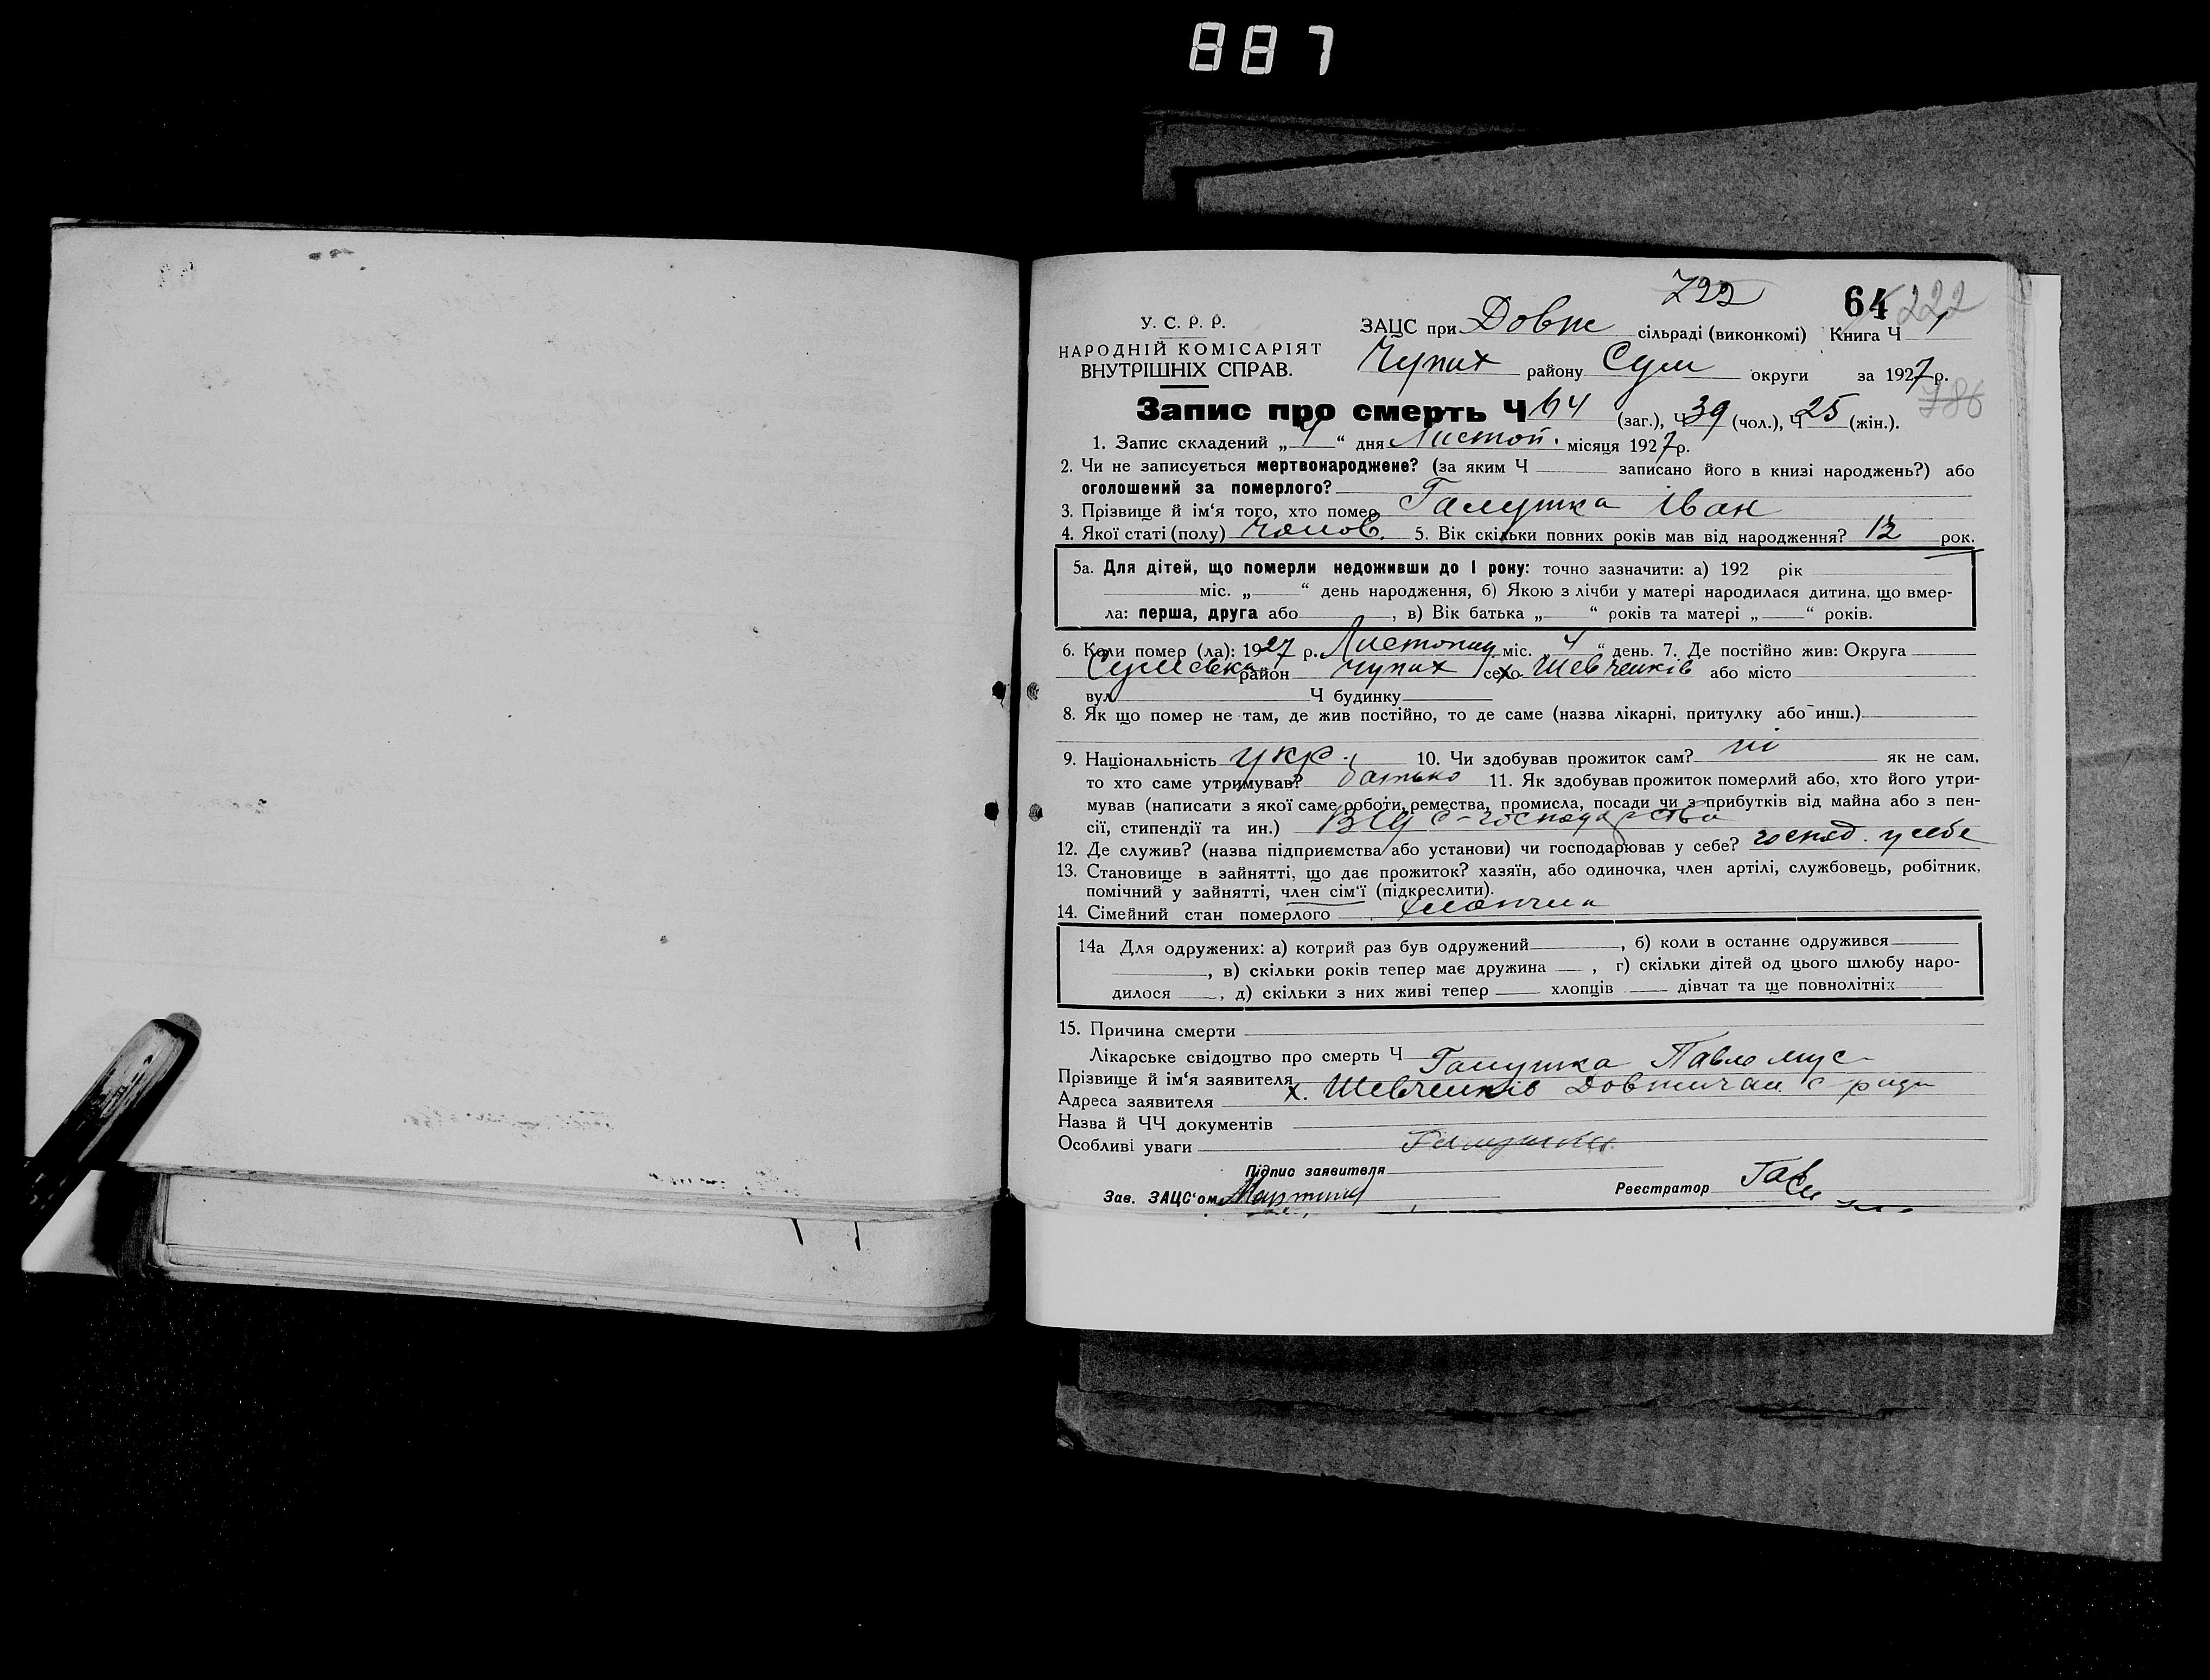 887
722
64 222
У. С. Р. Р.
НАРОДНІЙ КОМІСАРІЯТ
ВНУТРІШНІХ СПРАВ.
ЗАЦС при Довж сільраді (виконкомі) Книга Ч 1
Чупах району Сум округи за 1927 р.
786
Запис про смерть Ч 64 (заг.), Ч 39 (чол.), Ч 25 (жін.).
1. Запис складений „ 4 “ дня Листоп. місяця 1927 р.
2. Чи не записується мертвонароджене? (за яким Ч записано його в книзі народжень?) або
оголошений за померлого?
3. Прізвище й ім‘я того, хто помер Галушка Іван
4. Якої статі (полу) чолов. 5. Вік скільки повних років мав від народження? 12 рок.
5а. Для дітей, що померли недоживши до 1 року: точно зазначити: а) 192 рік
міс. „ “ день народження, б) Якою з лічби у матері народилася дитина, що вмер-
ла: перша, друга або , в) Вік батька „ “ років та матері „ “ років.
6. Коли помер (ла): 1927 р. Листопад міс. „ 4 “ день. 7. Де постійно жив: Округа
Сумська район Чупах село х Шевченків або місто
вул. Ч будинку
8. Як що помер не там, де жив постійно, то де саме (назва лікарні, притулку або инш.)
9. Національність укр. 10. Чи здобував прожиток сам? ні як не сам,
то хто саме утримував? батько 11. Як здобував прожиток померлий або, хто його утри-
мував (написати з якої саме роботи, ремества, промисла, посади чи з прибутків від майна або з пен-
сії, стипендії та ин.) від с-господарства
12. Де служив? (назва підприємства або установи) чи господарював у себе? господ. у себе
13. Становище в зайнятті, що дає прожиток? хазяїн, або одиночка, член артілі, службовець, робітник,
помічний у зайнятті, член сім‘ї (підкреслити).
14. Сімейний стан померлого
14а Для одружених: а) котрий раз був одружений , б) коли в останнє одружився
, в) скільки років тепер має дружина , г) скільки дітей од цього шлюбу наро-
дилося , д) скільки з них живі тепер хлопців дівчат та ще повнолітніх
15. Причина смерти
Лікарське свідоцтво про смерть Ч
Прізвище й ім‘я заявителя Галушка Павло
Адреса заявителя х. Шевченків с ради
Назва й ЧЧ документів
Особливі уваги Галушка
Підпис заявителя
Зав. ЗАЦС‘ом Реєстратор